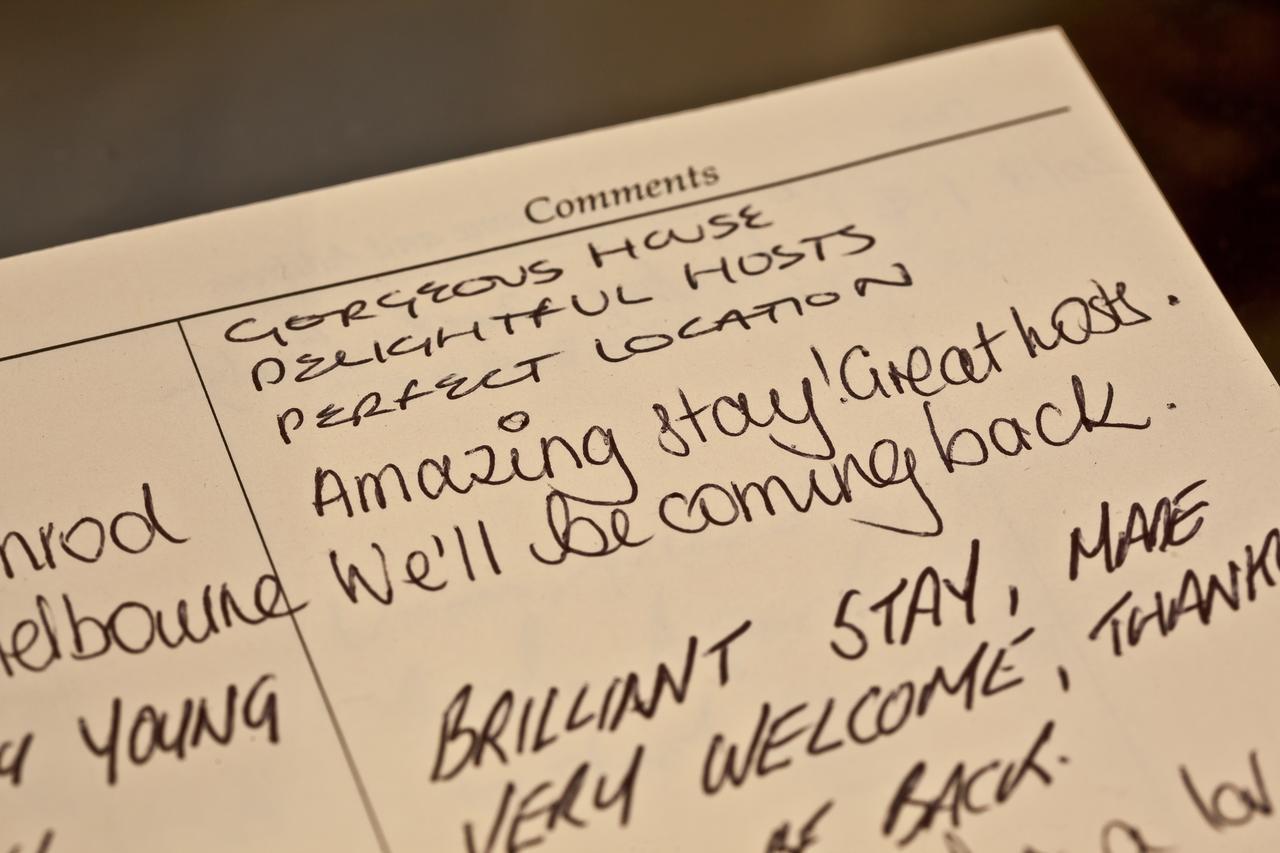 Comments
GORGEOUS HOUSE
DELIGHTFUL HOSTS
PERFECT LOCATION
Amazing stay! Great hosts.
We'll be coming back.
BRILLIANT STAY, MADE
VERY WELCOME, THANK
BE BACK.
a
nrod
elbourne
YOUNG